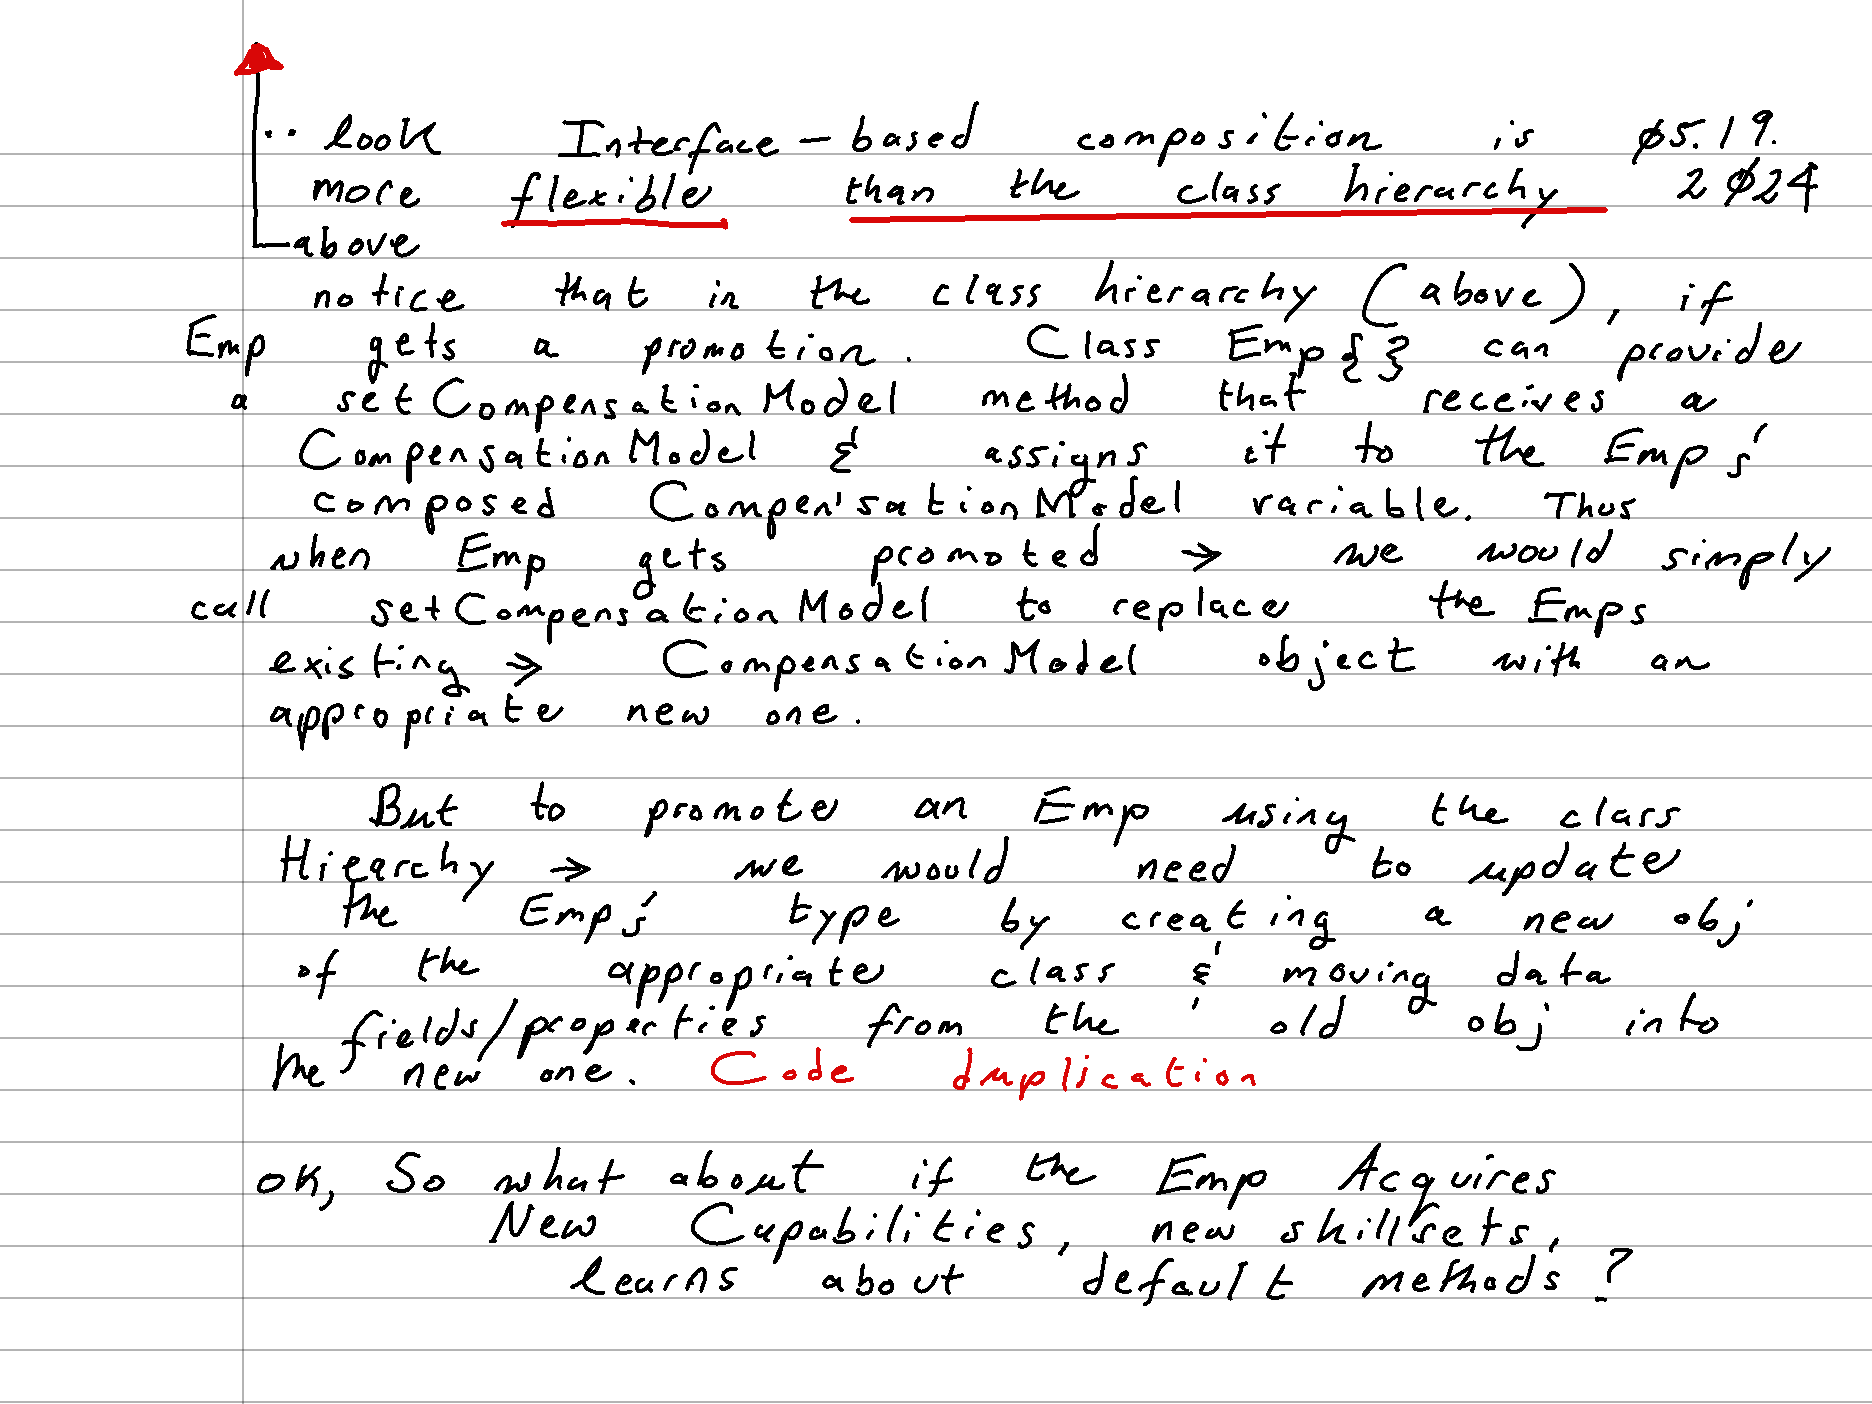 .. look Interface-based composition is 05.19.
more flexible than the class hierarchy 2024
above
notice that in the class hierarchy (above), if
Emp gets a promotion. Class Emp{} can provide
a setCompensationModel method that receives a
CompensationModel & assigns it to the Emps'
composed Compen'sationModel variable. Thus
when Emp gets promoted → we would simply
call setCompensationModel to replace the Emps
existing → CompensationModel object with an
appropriate new one.
But to promote an Emp using the class
Hiearchy → we would need to update
the Emps' type by creating a new obj
of the appropriate class & moving data
fields/properties from the old obj into
the new one. Code duplication
OK, So what about if the Emp Acquires
New Capabilities, new skillsets,
learns about default methods?